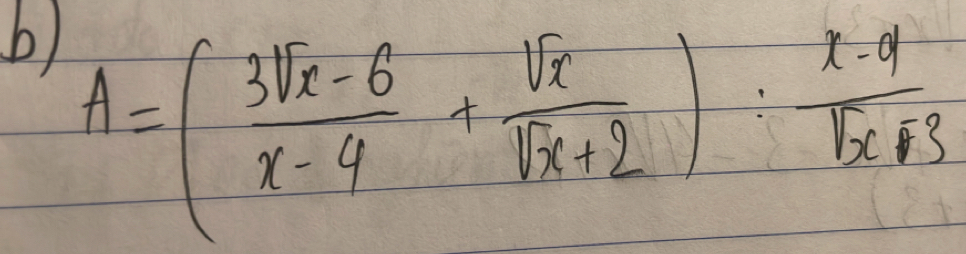 b)
A = ( (3√x - 6)/(x - 4) + √x/(√x + 2) ) : (x - 9)/(√x - 3)